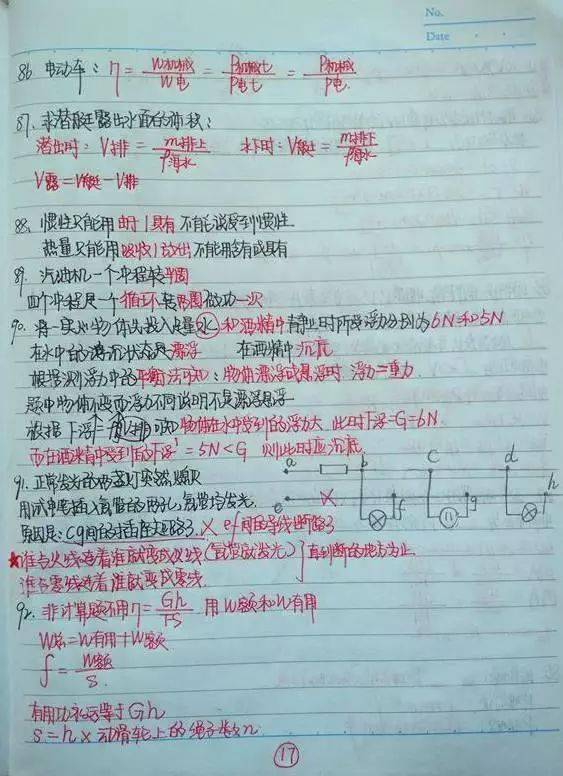 No.
Date
86. 电动车: η = W机械/W电 = P机械t/P电t = P机械/P电
87. 求潜艇露出水面的体积:
潜出时: V排 = m排上/ρ海水 水下时: V艇 = m排下/ρ海水
V露 = V艇 - V排
88. 惯性只能用由于/具有 不能说受到惯性
热量只能用吸收/放出 不能用含有或具有
89. 汽油机一个冲程转半圈
四个冲程是一个循环、转两圈 做功一次
90. 将一实心物体先投入足量水和酒精中 静止时所受浮力分别为6N和5N
在水中的沉浮状态是漂浮 在酒精中沉底
根据测浮力中的平衡法可知: 物体漂浮或悬浮时 浮力=重力
题中物体不变而浮力不同说明不是漂浮悬浮
根据F浮 可知物体在水中受到的浮力大. 此时F浮=G=6N
而在酒精中受到的F浮' = 5N<G 则此时应沉底
91. 正常发光的两盏灯突然熄灭
用试电笔插入氖管的两孔, 氖管均发光.
原因是: cg间的插座短路了. × ef间的导线断路了
★谁与火线连着谁就变成火线(氖管就发光)
谁与零线连着谁就变成零线
直到断的地方为止
a b c d e f g h
92. 非计算题不用η = Gh/FS 用W额和W有用
W总 = W有用+W额
f = W额/S
有用功永远等于Gh
S = h × 动滑轮上的绳子段数n
17